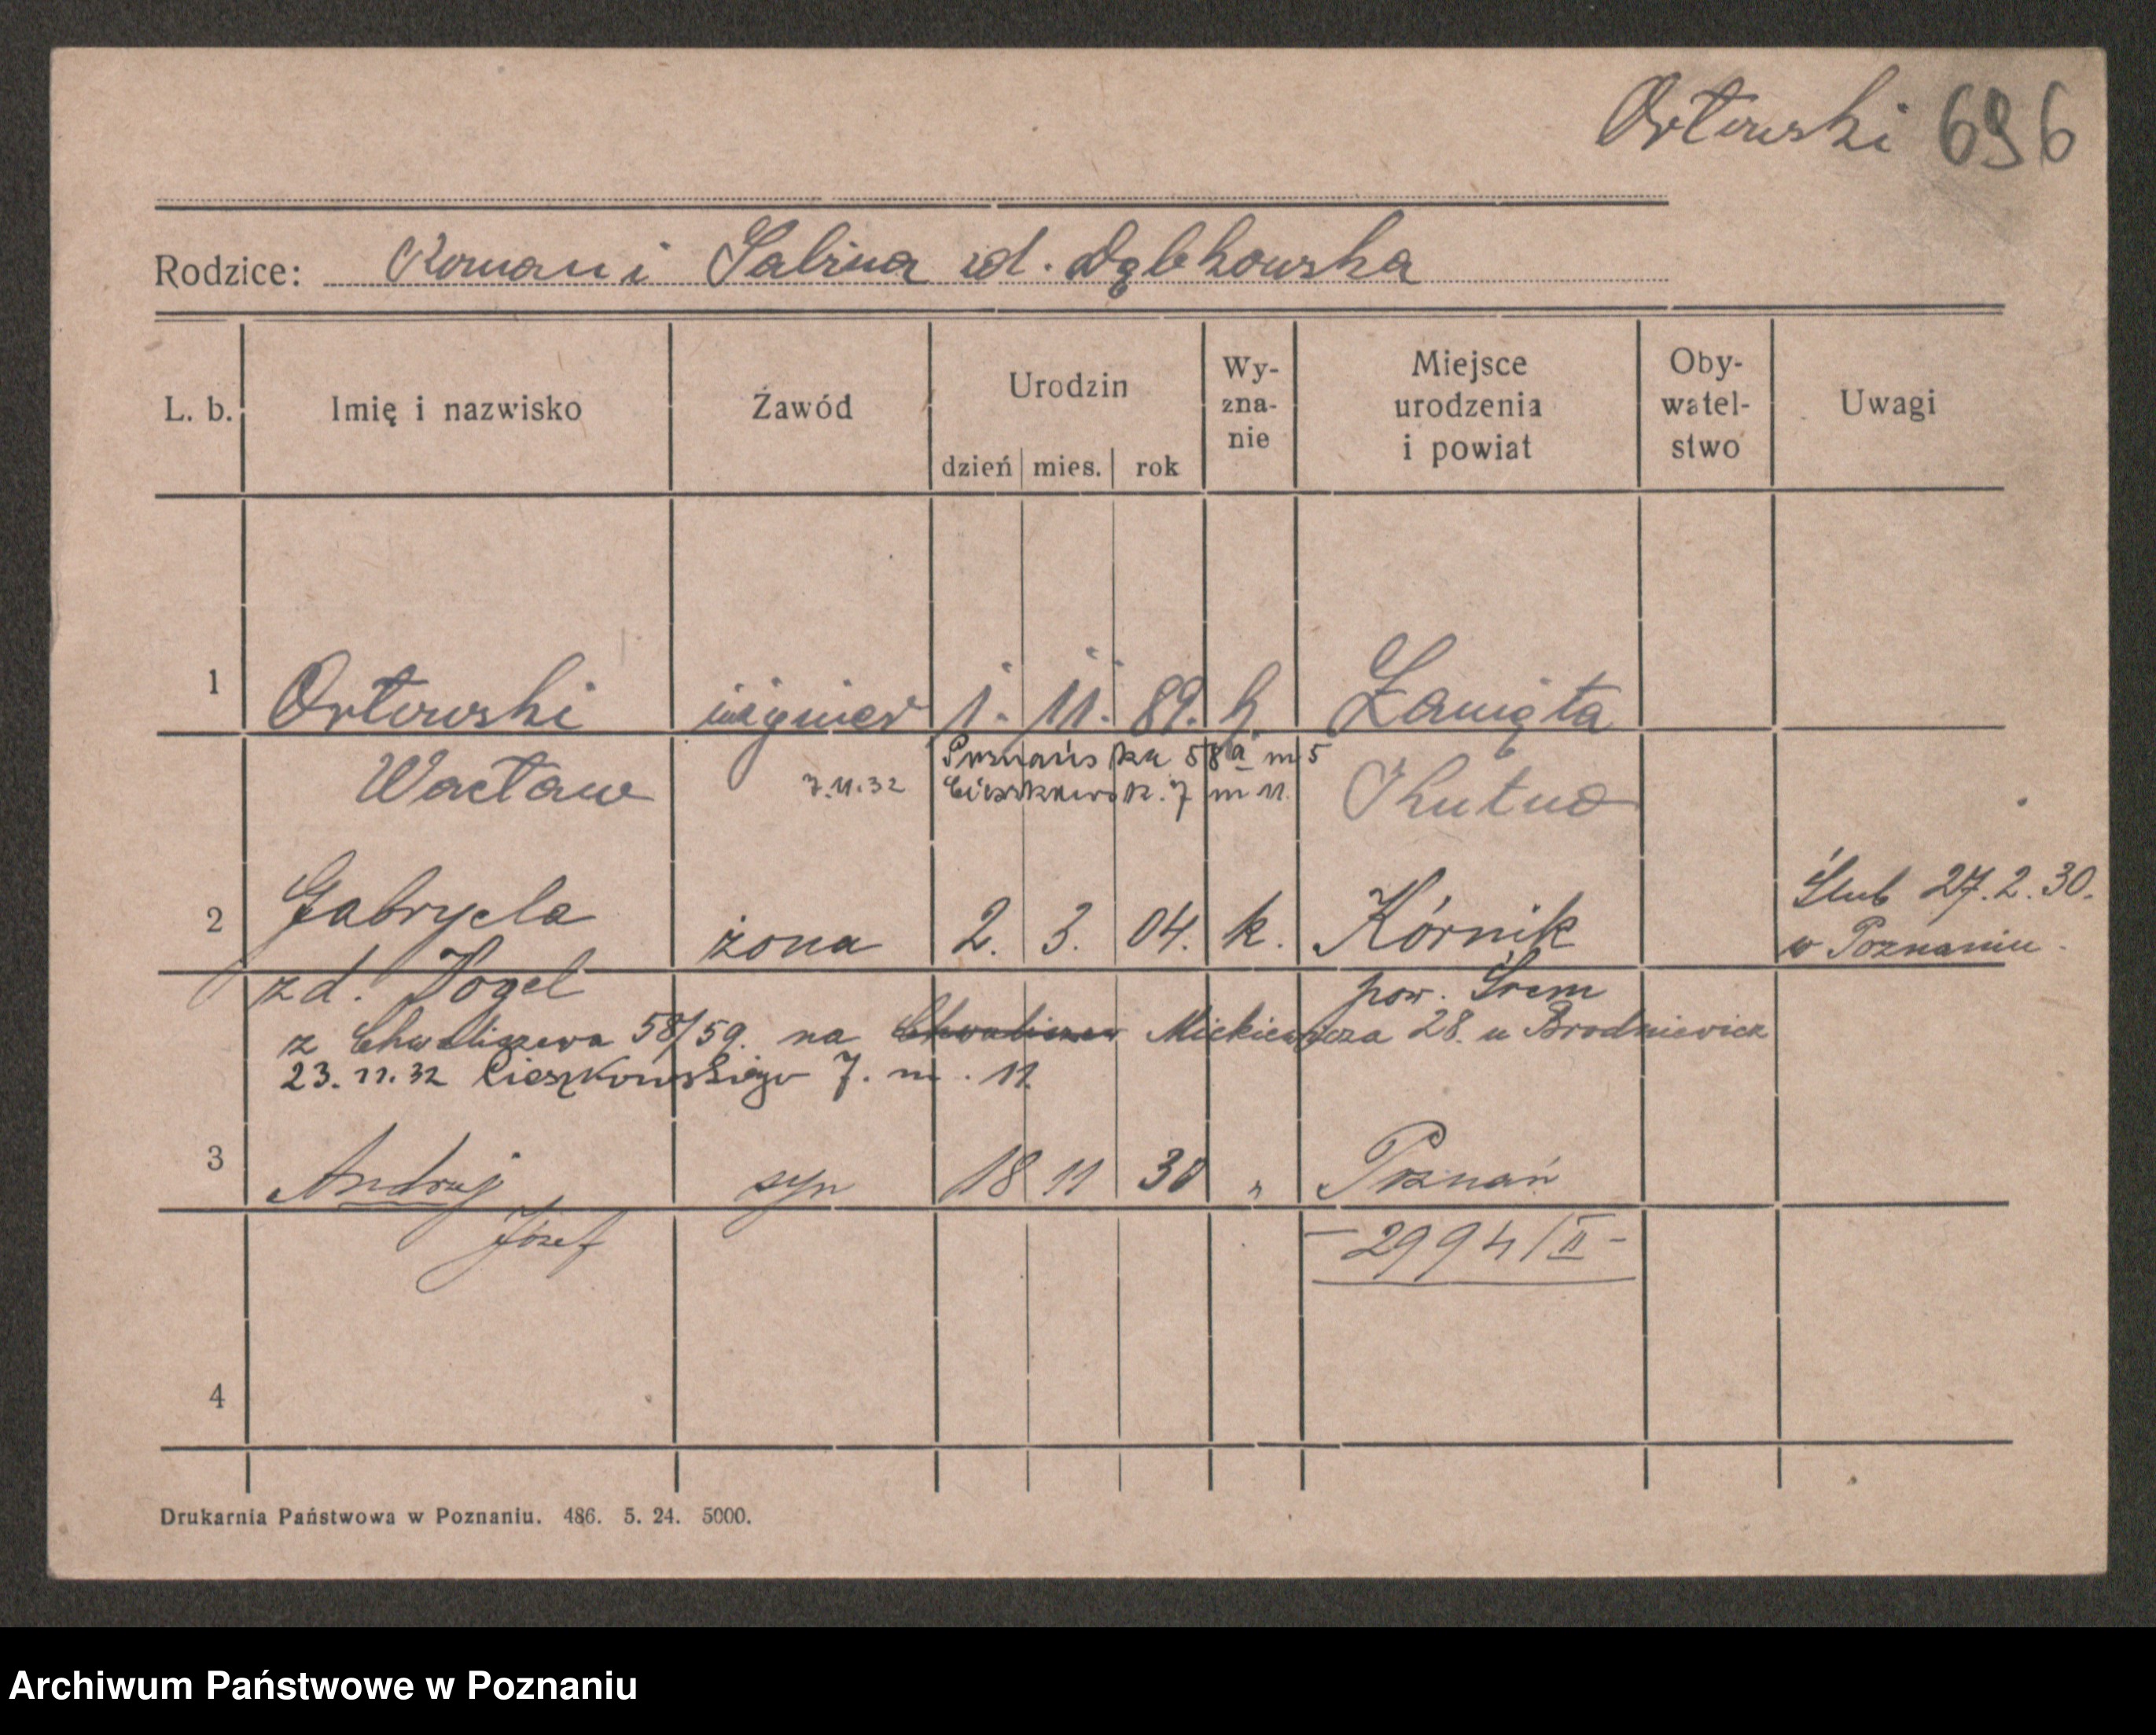 Orłowski 696
Rodzice: Roman i Sabina zd. Dąbkowska
L. b. Imię i nazwisko Zawód Urodzin dzień mies. rok Wy-zna-nie Miejsce urodzenia i powiat Oby-watel-stwo Uwagi
1 Orłowski inżynier 1. 11. 89. k. Łanięta
Wacław 7.11.32 Poznańska 58a m 5 Kutno
Cieszkowsk. 7 m 11.
2 Gabryela żona 2. 3. 04. k. Kórnik Ślub 27.2.30.
zd. Vogel pow. Śrem w Poznaniu.
z Chwaliszewa 58/59. na Chwaliszew Mickiewicza 28. u Brodniewicz
23.11.32 Cieszkowskiego 7. m. 11.
3 Andrzej syn 18 11 30 " Poznań
Józef - 2994/II -
4
Drukarnia Państwowa w Poznaniu. 486. 5. 24. 5000.
Archiwum Państwowe w Poznaniu